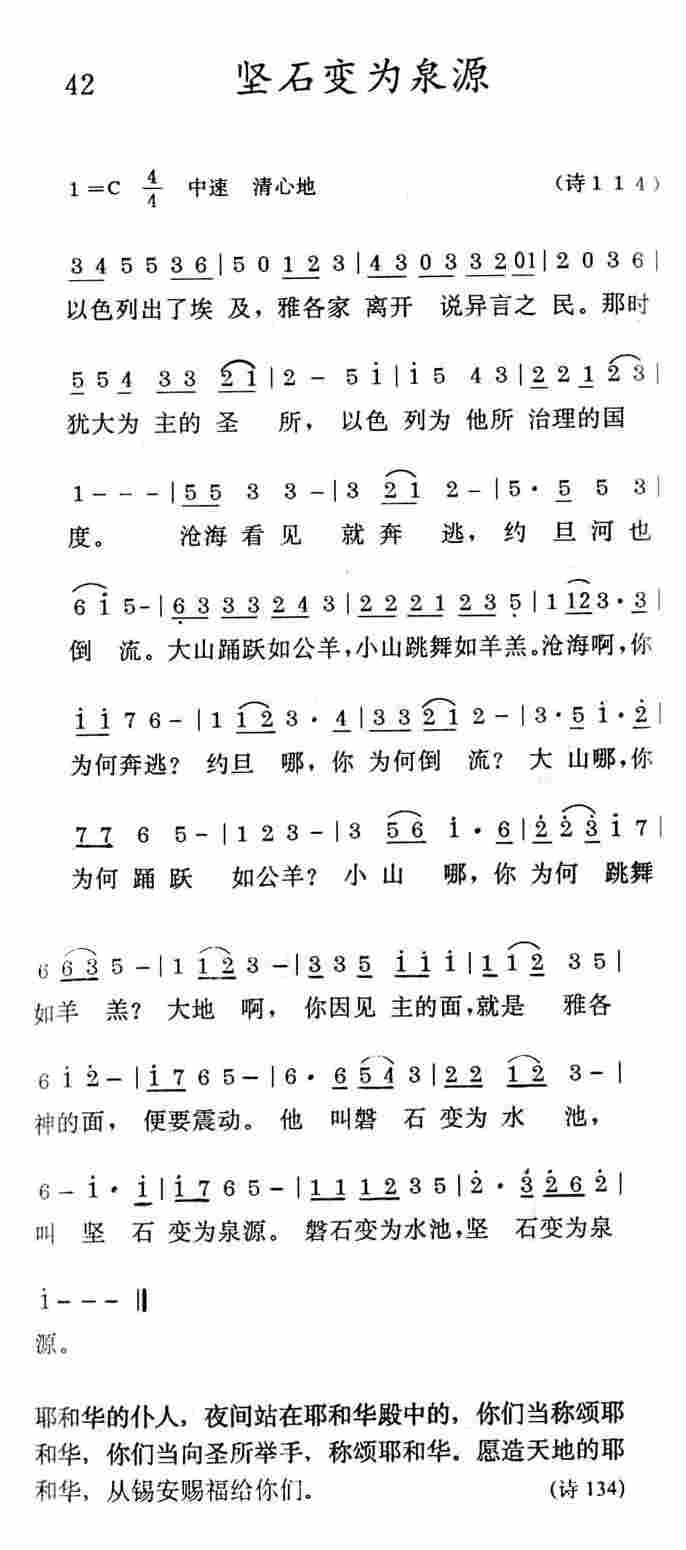 42 坚石变为泉源
1=C 4/4 中速 清心地 (诗114)
3 4 5 5 3 6 | 5 0 1 2 3 | 4 3 0 3 3 2 01 | 2 0 3 6 |
以色列出了埃 及，雅各家 离开 说异言之 民。那时
5 5 4 3 3 2 1 | 2 - 5 i | i 5 4 3 | 2 2 1 2 3 |
犹大为 主的 圣 所， 以色 列为 他所 治理的国
1 - - - | 5 5 3 3 - | 3 2 1 2 - | 5· 5 5 3 |
度。 沧海 看 见 就 奔 逃，约 旦 河 也
6 i 5 - | 6 3 3 3 2 4 3 | 2 2 2 1 2 3 5 | 1 12 3· 3 |
倒 流。大山踊跃如公羊，小山跳舞如羊羔。沧海啊，你
i i 7 6 - | 1 1 2 3· 4 | 3 3 2 1 2 - | 3· 5 i· 2 |
为何奔逃？ 约旦 哪，你 为何倒 流？ 大 山哪，你
7 7 6 5 - | 1 2 3 - | 3 5 6 i· 6 | 2 2 3 i 7 |
为何 踊 跃 如公羊？ 小 山 哪，你 为何 跳舞
6 6 3 5 - | 1 1 2 3 - | 3 3 5 i i i | i i 2 3 5 |
如羊 羔？ 大地 啊， 你因见 主的面，就是 雅各
6 i 2 - | i 7 6 5 - | 6· 6 5 4 3 | 2 2 1 2 3 - |
神的面， 便要震动。他 叫磐 石 变为 水 池，
6 - i· i | i 7 6 5 - | 1 1 1 2 3 5 | 2· 3 2 6 2 |
叫 坚 石 变为泉源。 磐石变为水池，坚 石变为泉
i - - - ‖
源。
耶和华的仆人，夜间站在耶和华殿中的，你们当称颂耶
和华，你们当向圣所举手，称颂耶和华。愿造天地的耶
和华，从锡安赐福给你们。 (诗 134)